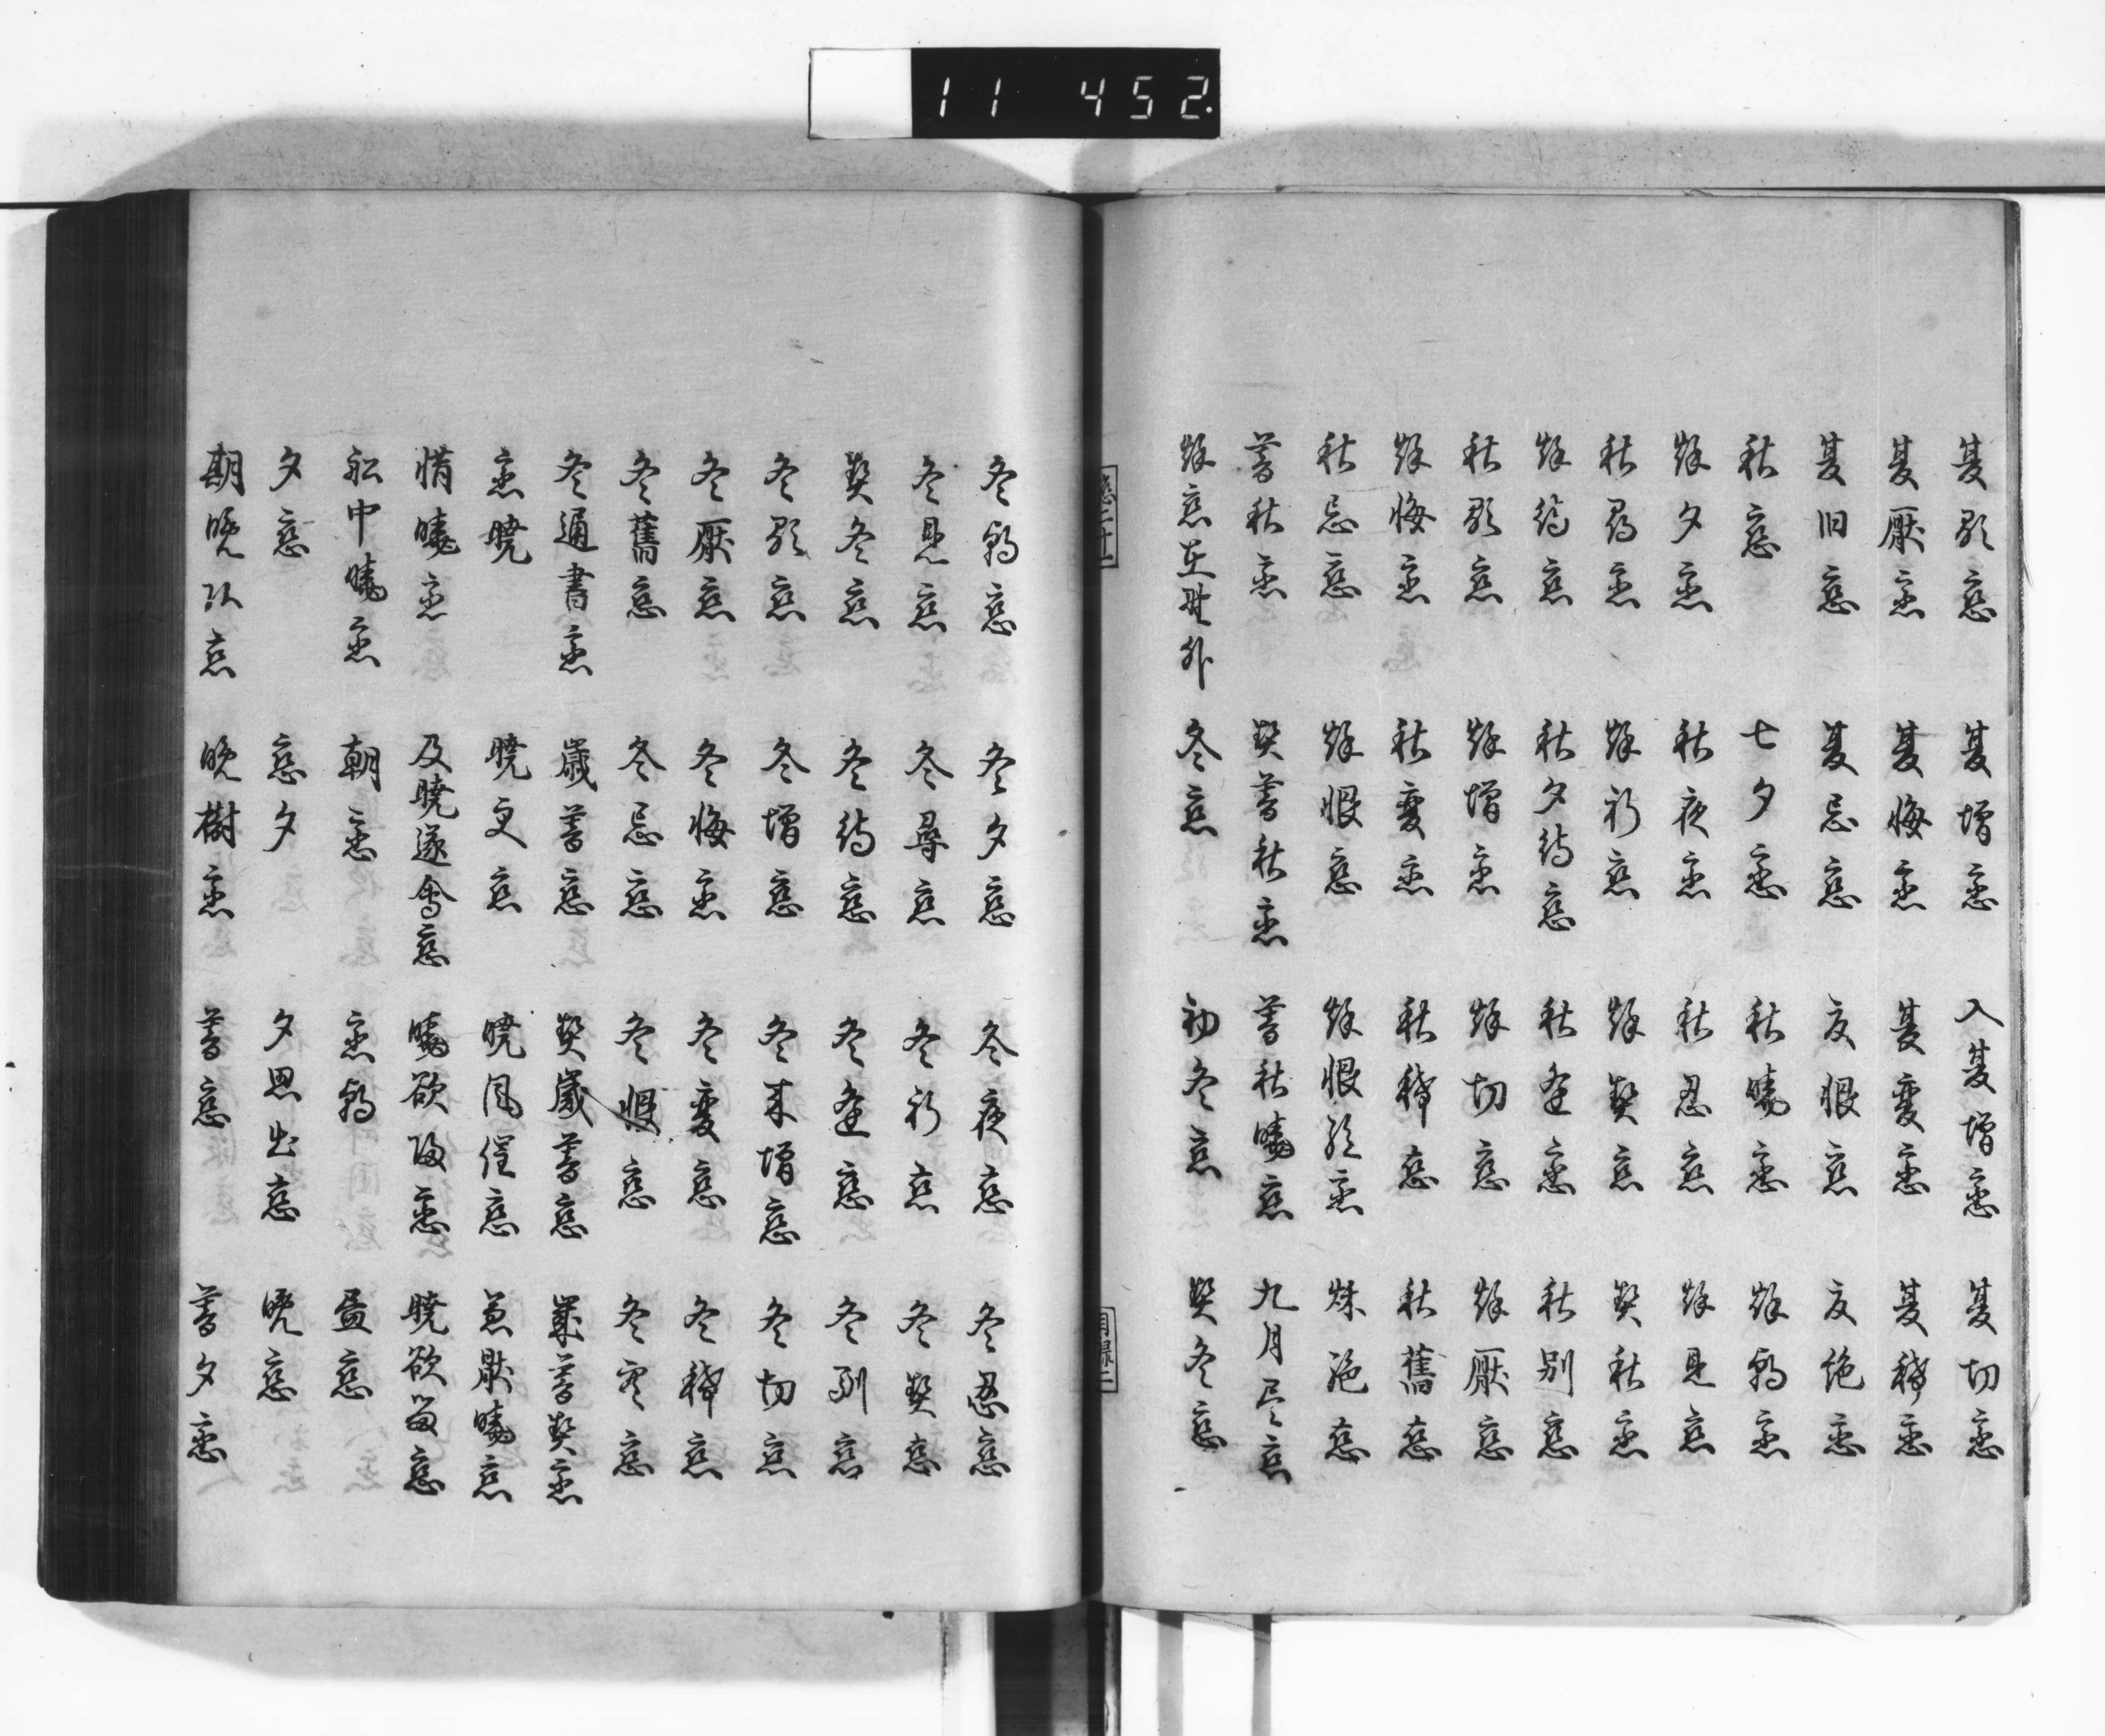 11 452.
夏顕恋 夏増恋 入夏増恋 夏切恋
夏厭恋 夏悔恋 夏変恋 夏稀恋
夏旧恋 夏忘恋 夏恨恋 夏絶恋
秋恋 七夕恋 秋暁恋 秋朝恋
秋夕恋 秋夜恋 秋忍恋 秋見恋
秋尋恋 秋祈恋 秋契恋 契秋恋
秋待恋 秋夕待恋 秋逢恋 秋別恋
秋顕恋 秋増恋 秋切恋 秋厭恋
秋悔恋 秋変恋 秋稀恋 秋舊恋
秋忘恋 秋恨恋 秋恨絶恋 秋絶恋
暮秋恋 契暮秋恋 暮秋暁恋 九月尽恋
秋恋在野外 冬恋 初冬恋 契冬恋
恋二十一 目録二
冬朝恋 冬夕恋 冬夜恋 冬忍恋
冬見恋 冬尋恋 冬祈恋 冬契恋
契冬恋 冬待恋 冬逢恋 冬別恋
冬顕恋 冬増恋 冬来増恋 冬切恋
冬厭恋 冬悔恋 冬変恋 冬稀恋
冬舊恋 冬忘恋 冬恨恋 冬寄恋
冬通書恋 歳暮恋 契歳暮恋 歳暮契恋
恋暁 暁更恋 暁風催恋 兼厭暁恋
惜暁恋 及暁遂會恋 暁欲帰恋 暁欲留恋
船中暁恋 朝恋 恋朝 昼恋
夕恋 恋夕 夕思出恋 晩恋
期晩以恋 晩樹恋 暮恋 暮夕恋